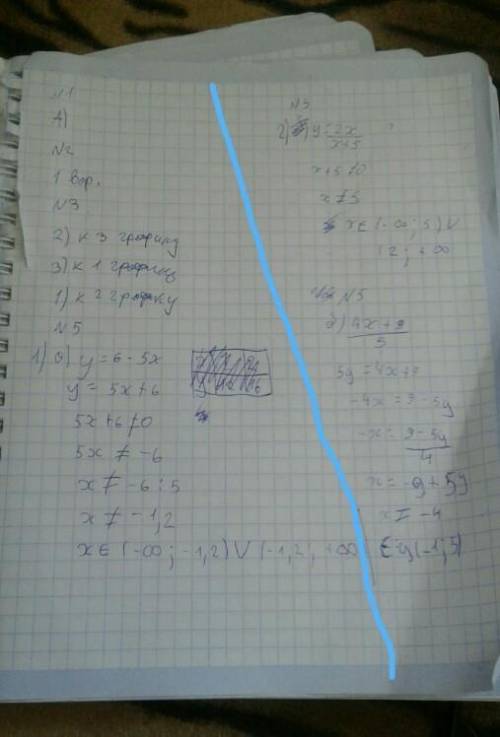 N1
A)
N2
1 вар.
N3
2) к 3 графику
3) к 1 графику
1) к 2 графику
N5
1) а) y = 6 - 5x
y = 5x + 6
5x + 6 ≠ 0
5x ≠ -6
x ≠ -6 : 5
x ≠ -1,2
x ∈ (-∞; -1,2) ∪ (-1,2), +∞
N5
2) y = 2x / x+5
x+5 ≠ 0
x ≠ 5
x ∈ (-∞; 5) ∪
; +∞
N5
4x + 9 / 5
5y = 4x + 9
-4x = 9 - 5y
-x = 9 - 5y / 4
x = -9 + 5y
x = -4